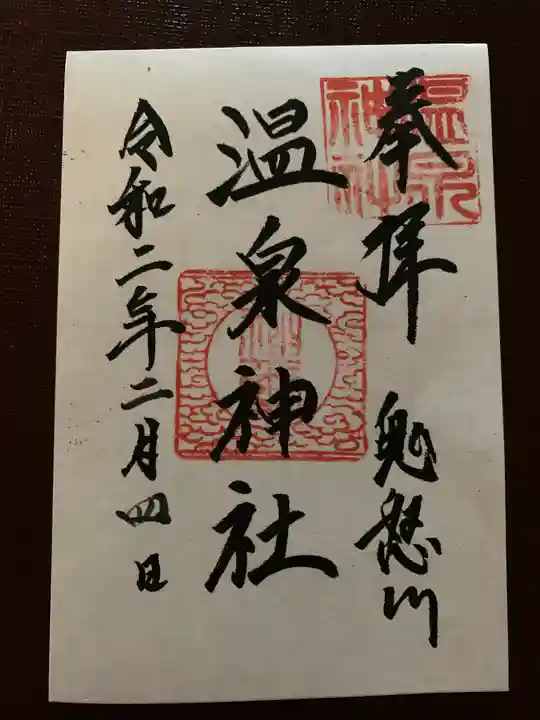 奉拝 鬼怒川
温泉神社
令和二年二月四日
温泉神社